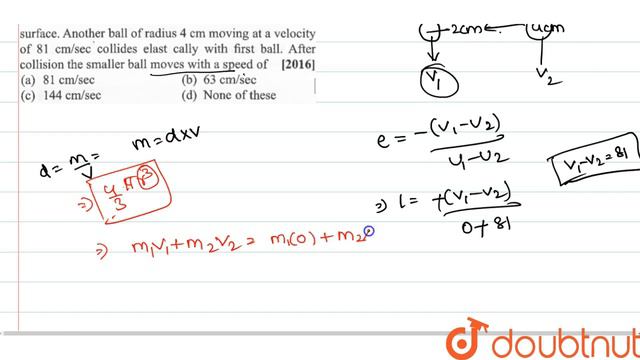 surface. Another ball of radius 4 cm moving at a velocity
of 81 cm/sec collides elast cally with first ball. After
collision the smaller ball moves with a speed of [2016]
(a) 81 cm/sec (b) 63 cm/sec
(c) 144 cm/sec (d) None of these
2cm 4cm
V₁ V₂
d = m/V =
m = d×v
⇒ 4/3 π r³
e = -(V₁-V₂)/(u₁-u₂)
V₁-V₂ = 81
⇒ 1 = +(V₁-V₂)/(0+81)
⇒ m₁V₁ + m₂V₂ = m₁(0) + m₂
doubtnut